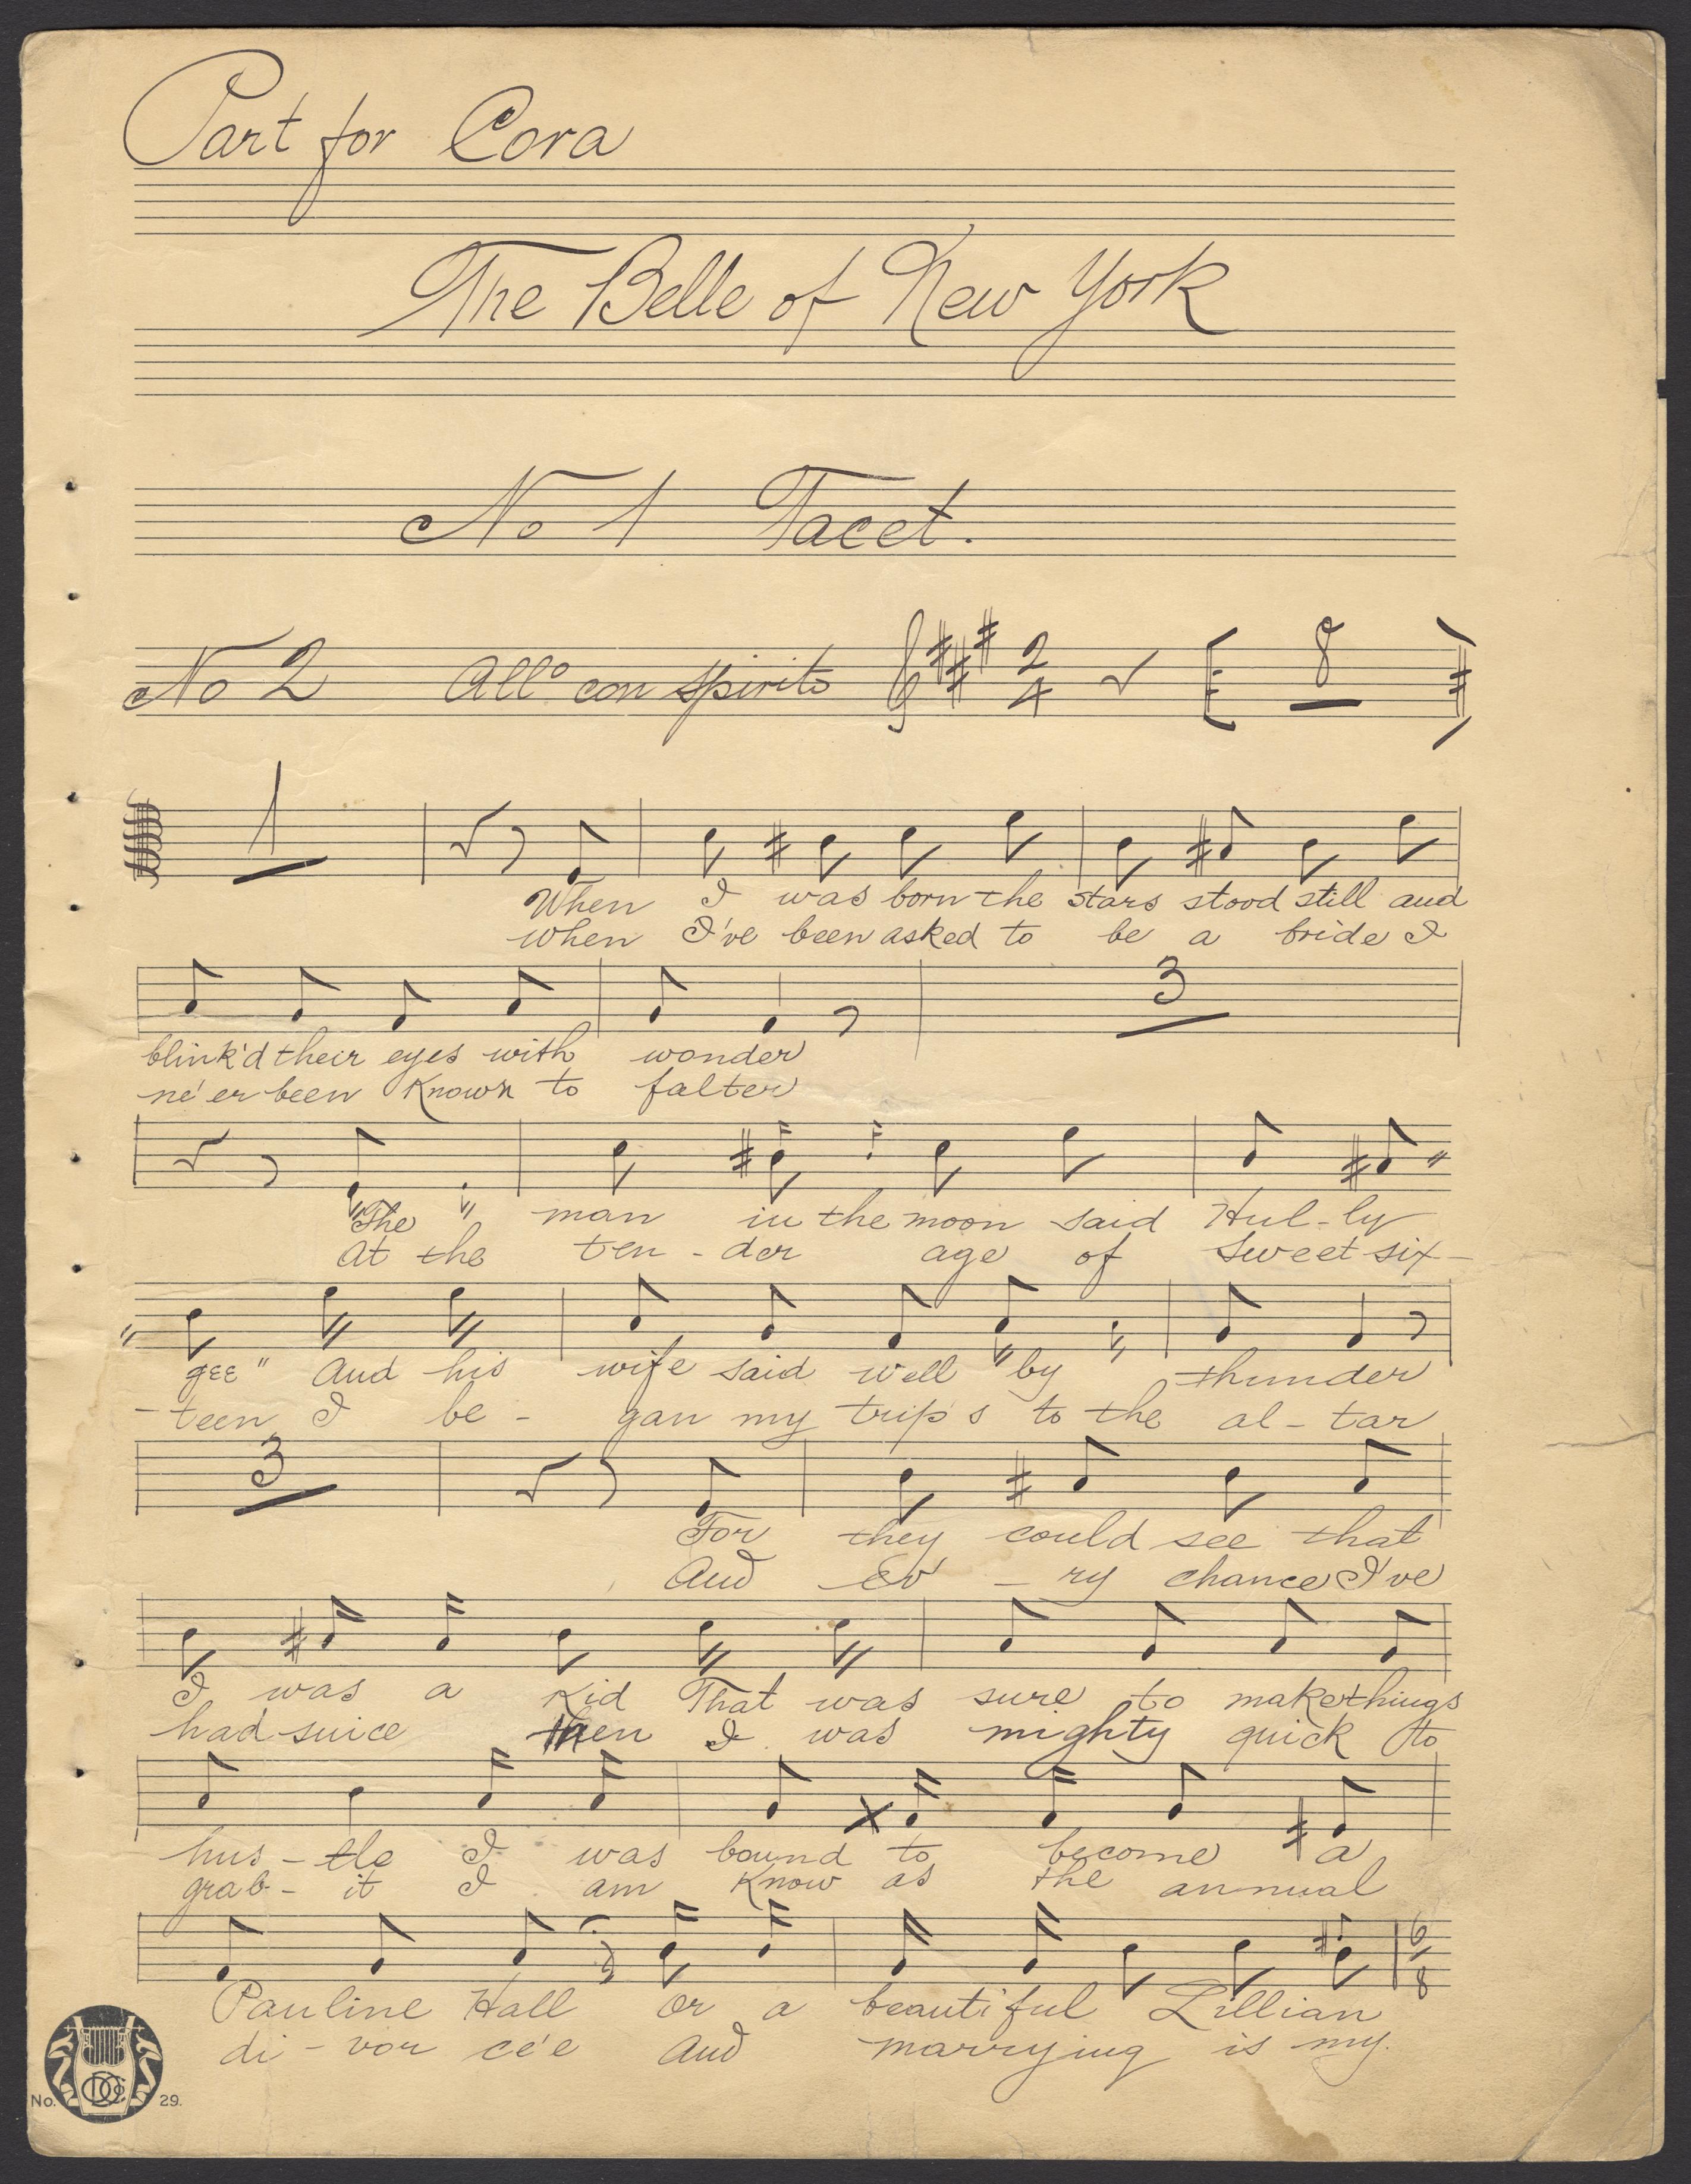 Part for Cora
The Belle of New York
No 1 Tacet.
No 2 Allo con spirito 2 4 8
1
When I was born the stars stood still and
when I've been asked to be a bride I
3
blink'd their eyes with wonder
ne'er been Known to falter
The man in the moon said "Hul-ly
At the ten - der age of sweet six-
gee" And his wife said well "by thunder
-teen I be - gan my trip's to the al - tar
3
For they could see that
And Ev - ry chance I've
I was a Kid That was sure to make things
had suice then I was mighty quick to
hus - tle I was bound to become a
grab - it I am Know as the annual
6 8
Pauline Hall or a beautiful Lillian
di - vor ce'e And marrying is my.
No. DCo 29.